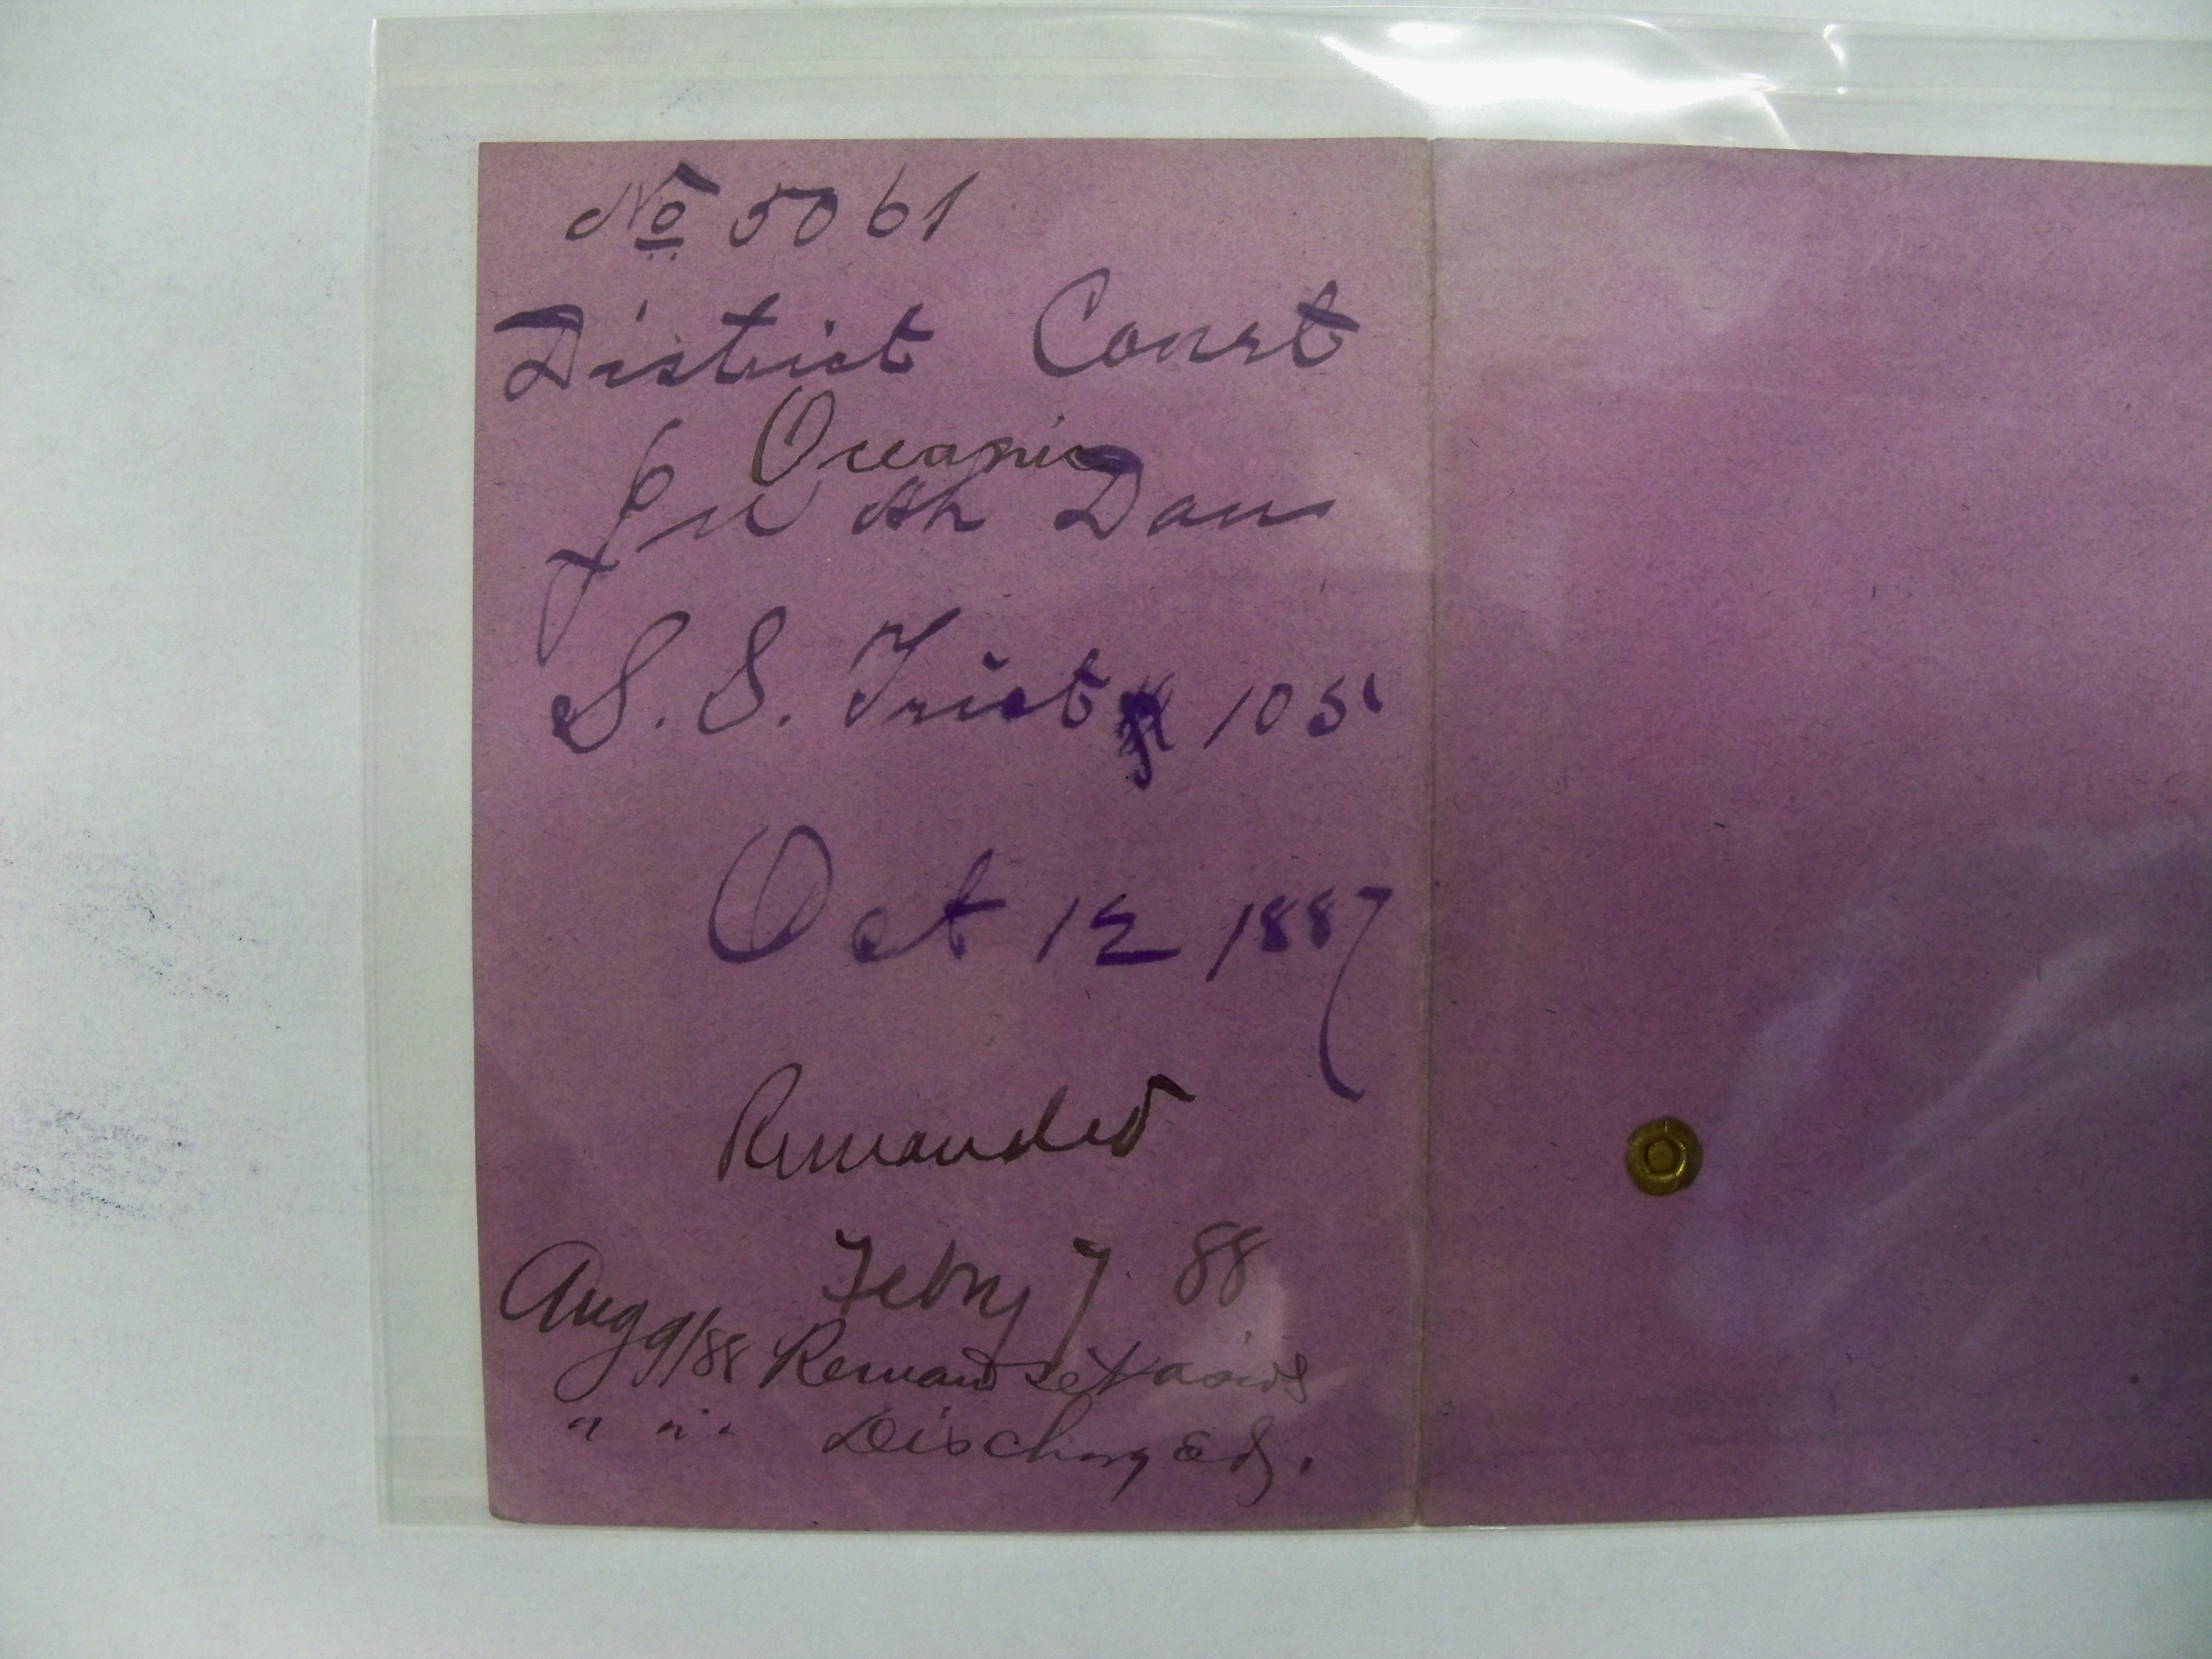 No 5061
District Court
Oceanic
Ah Dan
S. S. Trist 105
Oct 12 1887
Remanded
Febry 7 88
Aug 9/88 Remand set aside
" " " Discharged.